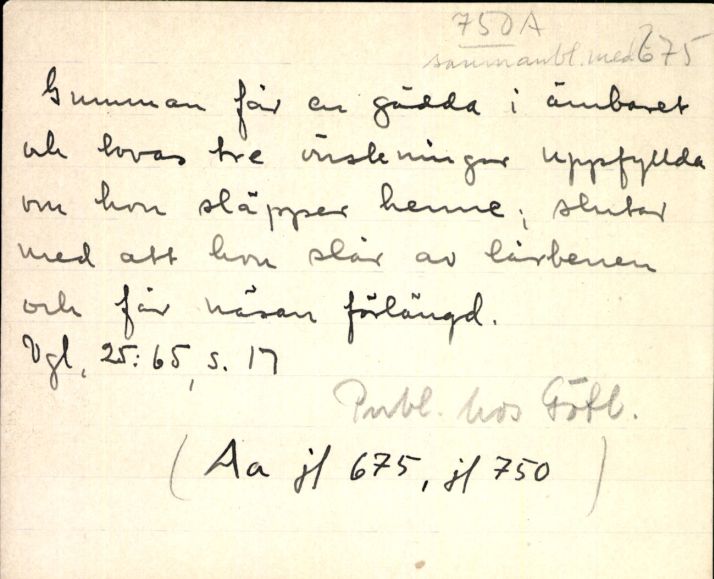 750A
sammanbl. med 675
Gumman får en gädda i ämbaret
och lovas tre önskningar uppfyllda
om hon släpper henne; slutar
med att hon slår av lårbenen
och får näsan förlängd.
Vgl, 25:65, s. 17
Publ. hos Götl.
(Aa jf 675, jf 750)